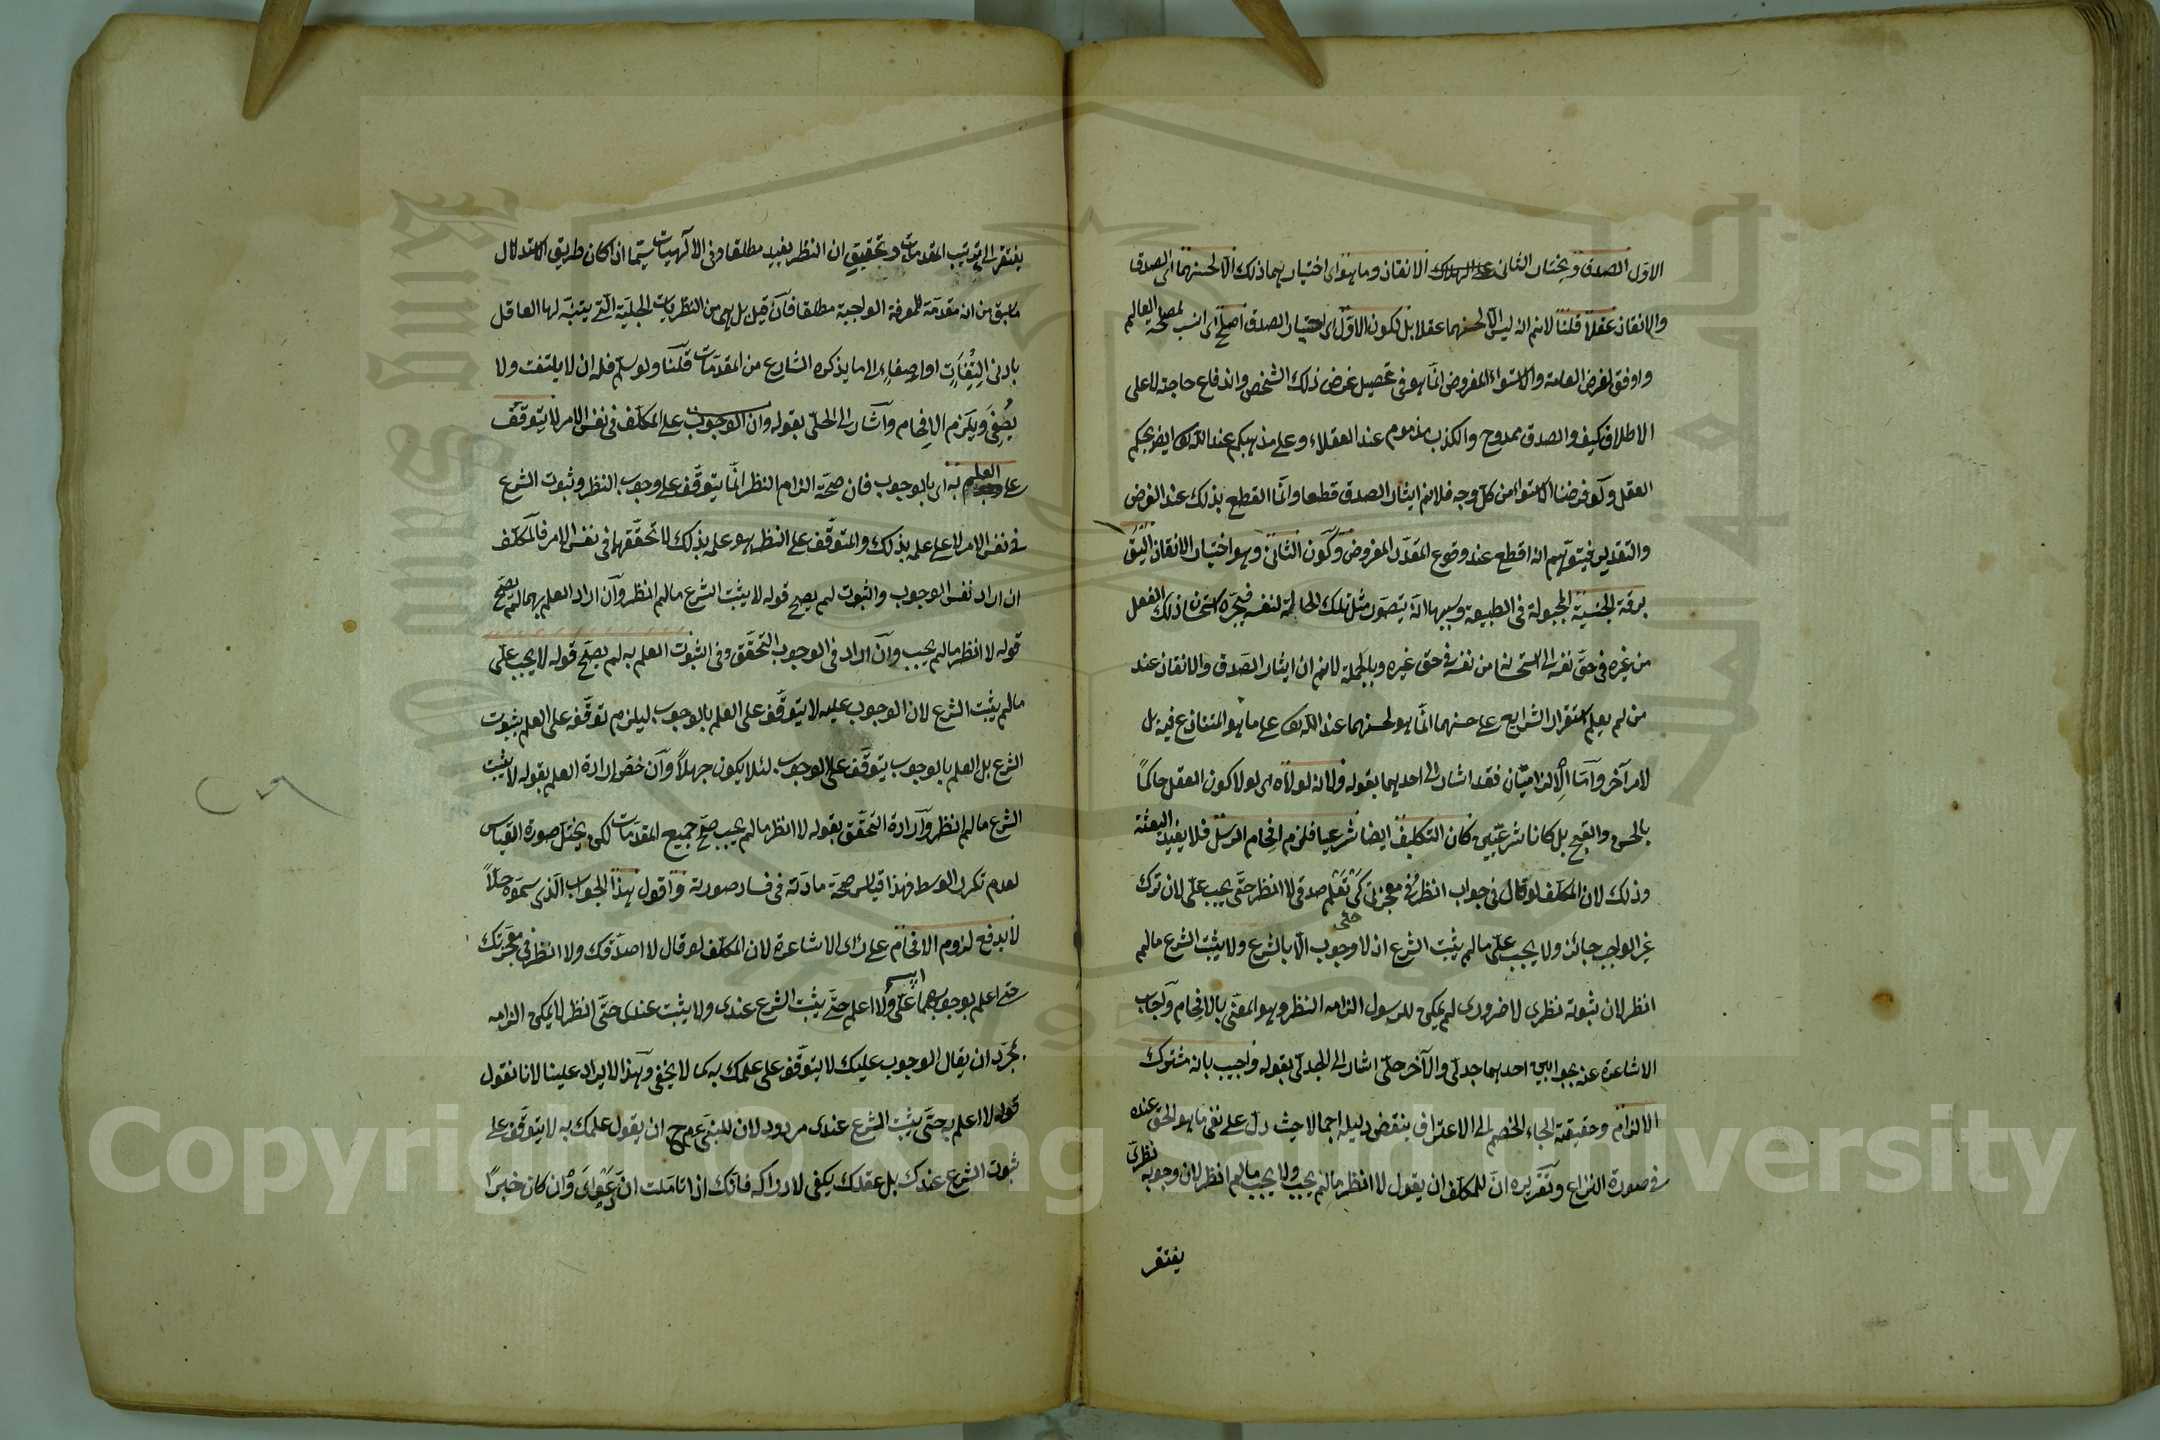 الاول الصدق ويختار الثاني الانقاذ وما هو اى اختيارهما ذلك الا لحسنهما اى الصدق
والانقاذ عقلا قلنا لانم انه ليس الا لحسنهما عقلا بل لكون الاول اى اختيار الصدق اصلح اى انسب لمصلحة العالم
واوفق لغرض العامة والاستواء المفروض انما هو فى تحصيل غرض ذلك الشخص واندفاع حاجته لا على
الاطلاق كيف والصدق ممدوح والكذب مذموم عند العقلاء وعلى مذهبكم عند الله تع ايضا بحكم
العقل ولو فرضنا الاستواء من كل وجه فلانم ايثار الصدق قطعا وانما القطع بذلك عند الفرض
والتقدير فيتوهم انه اقطع عند وقوع المقدر المفروض وكون الثانى وهو اختيار الانقاذ اليق
برقة الجنسية المجبولة فى الطبيعة وسببها انه يتصور مثل تلك الحالة لنفسه فيجره استحسان ذلك الفعل
من غيره فى حق نفسه الى استحسانه من نفسه فى حق غيره وبالجملة لانم ان ايثار الصدق والانقاذ عند
من لم يعلم استقرار الشرايع على حسنهما انما هو لحسنهما عند الله تع على ما هو المتنازع فيه بل
لامر آخر واما الالزاميتان فقد اشار الى احدهما بقوله ولانه لولاه اى لولا كون العقل حاكما
بالحسن والقبح بل كانا شرعيين كان التكليف ايضا شرعيا فلزم افحام الرسل فلا يفيد البعثة
وذلك لان المكلف لو قال فى جواب انظر فى معجزتى كى تعلم صدقى لا انظر حتى يجب على لان ترك
غير الواجب جائز ولا يجب على ما لم يثبت الشرع اذ لا وجوب على الا بالشرع ولا يثبت الشرع ما لم
انظر لان ثبوته نظرى لا ضرورى لم يمكن للرسول الزامه النظر وهو المعنى بالافحام واجاب
الاشاعرة عنه بجوابين احدهما جدلى والآخر حلى اشار الى الجدلى بقوله واجيب بانه مشترك
الالزام وحقيقته الجاء الخصم الى الاعتراف بنقض دليله اجمالا حيث دل على نفى ما هو الحق عنده
فى صورة النزاع وتقريره ان للمكلف ان يقول لا انظر ما لم يجب ولا يجب ما لم انظر لان وجوبه نظرى
يفتقر
يفتقر الى ترتيب المقدمات وتحقيق ان النظر يفيد مطلقا وفى الالهيات سيما اذا كان طريق الاستدلال
ما سبق من انه مقدمة للمعرفة الواجبة مطلقا فان قيل بل هى من النظريات الجلية التى يتنبه لها العاقل
بادنى التفات او اصغاء الى ما يذكره الشارع من المقدمات قلنا ولو سلم فله ان لا يلتفت ولا
يصغى ويلزم الافحام واشار الى الحلى بقوله وان الوجوب على المكلف فى نفس الامر لا يتوقف
على العلم به اى بالوجوب فان صحة الزام النظر انما يتوقف على وجوب النظر وثبوت الشرع
فى نفس الامر لا على علمه بذلك والمتوقف على النظر هو علمه بذلك لا تحققهما فى نفس الامر فالمكلف
ان اراد نفس الوجوب والثبوت لم يصح قوله لا يثبت الشرع ما لم انظر وان اراد العلم بهما لم يصح
قوله لا انظر ما لم يجب وان اراد فى الوجوب التحقق وفى الثبوت العلم به لم يصح قوله لا يجب على
ما لم يثبت الشرع لان الوجوب عليه لا يتوقف على العلم بالوجوب ليلزم توقفه على العلم بثبوت
الشرع بل العلم بالوجوب يتوقف على الوجوب لئلا يكون جهلا وان خص ارادة العلم بقوله لا يثبت
الشرع ما لم انظر وارادة التحقق بقوله لا انظر ما لم يجب صح جميع المقدمات لكن يختل صورة القياس
لعدم تكرر الوسط فهذا قياس صحة مادته فى فساد صورته واقول هذا الجواب الذى سموه حلا
لا يدفع لزوم الافحام على راى الاشاعرة لان المكلف لو قال لا اصدقك ولا انظر فى معجزتك
حتى اعلم بوجوبهما على ولا اعلم حتى يثبت الشرع عندى ولا يثبت عندى حتى انظر لا يمكن الزامه
بمجرد ان يقال الوجوب عليك لا يتوقف على علمك به كما لا يخفى وبهذا لا ايراد علينا لانا نقول
قوله لا اعلم حتى يثبت الشرع عندى مردود لان للنبى عم ح ان يقول علمك به لا يتوقف على
ثبوت الشرع عندك بل عقلك يكفى لادراكه فانك اذا تاملت ان دعواى وان كان خبرا